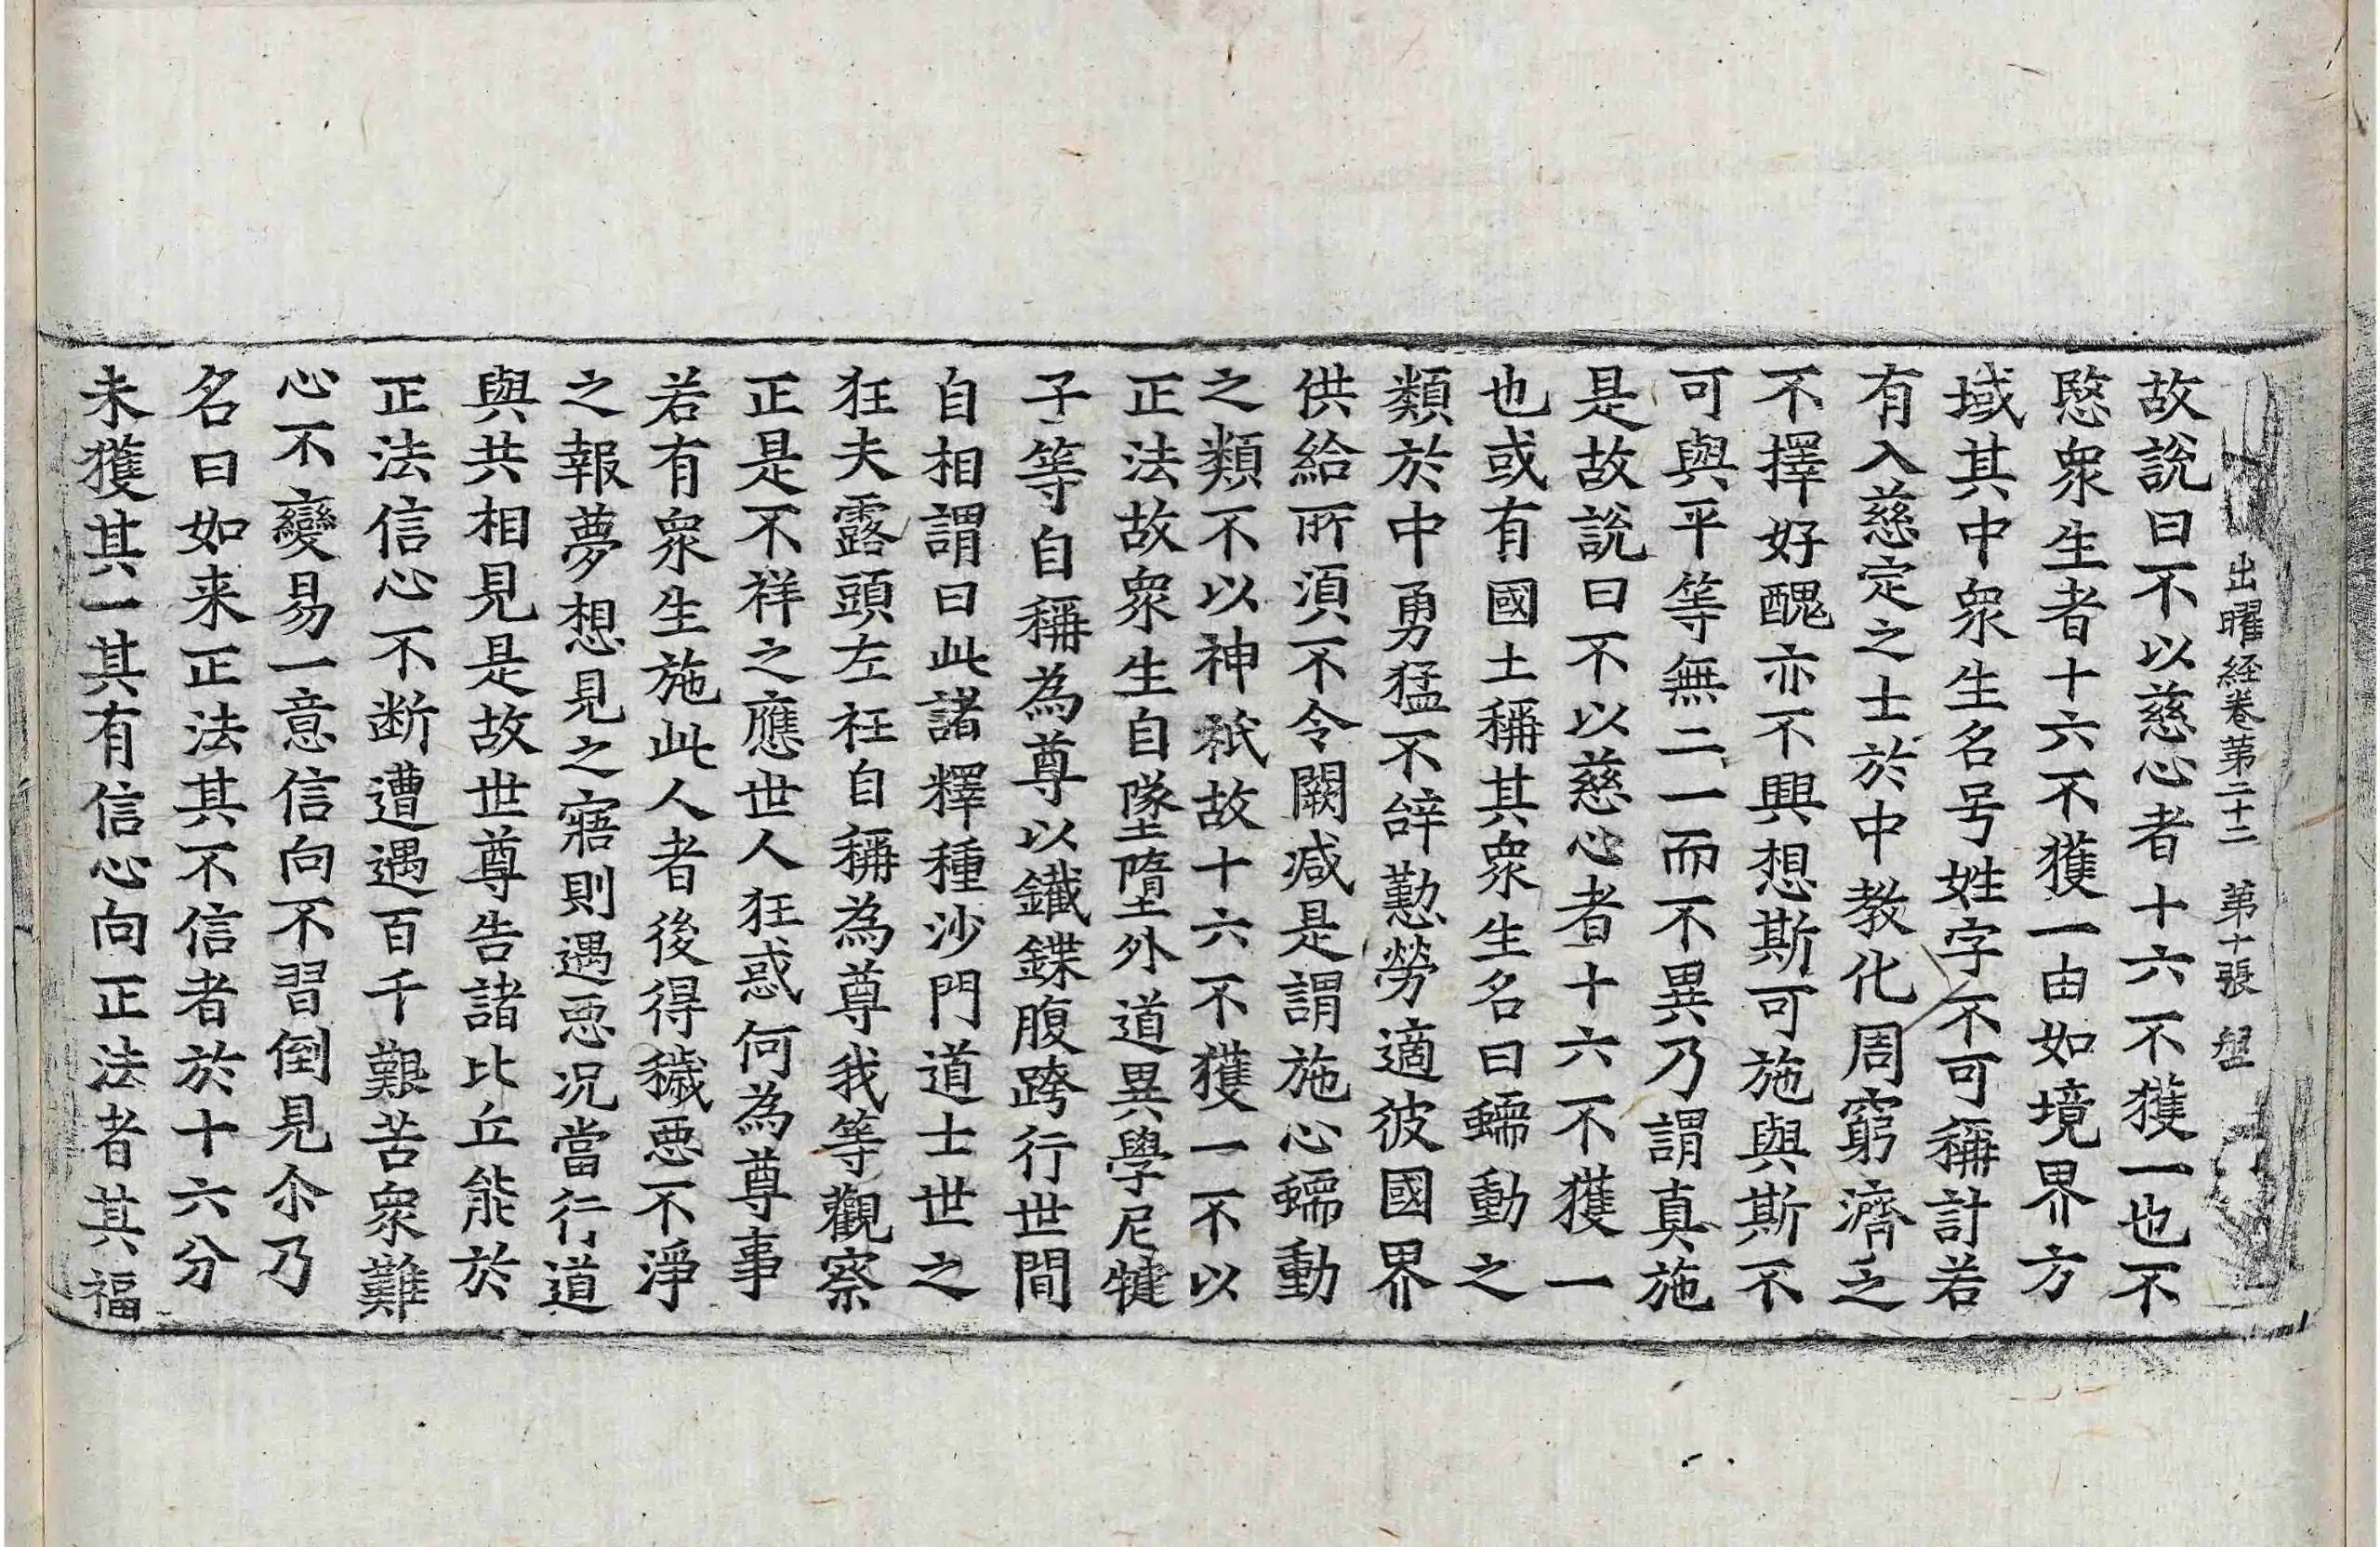 出曜経巻第二十二 第十張 盤
故說曰不以慈心者十六不獲一也不
愍衆生者十六不獲一由如境界方
域其中衆生名号姓字不可稱計若
有入慈定之士於中教化周窮濟乏
不擇好醜亦不興想斯可施與斯不
可與平等無二一而不異乃謂真施
是故說曰不以慈心者十六不獲一
也或有國土稱其衆生名曰蠕動之
類於中勇猛不辞懃勞適彼國界
供給所湏不令闕减是謂施心蠕動
之類不以神祇故十六不獲一不以
正法故衆生自墜墮外道異學尼犍
子等自稱為尊以鐵鍱腹跨行世間
自相謂曰此諸釋種沙門道士世之
狂夫露頭左衽自稱為尊我等觀察
正是不祥之應世人狂惑何為尊事
若有衆生施此人者後得穢惡不淨
之報夢想見之寤則遇惡况當行道
與共相見是故世尊告諸比丘能於
正法信心不断遭遇百千艱苦衆難
心不變易一意信向不習倒見尒乃
名曰如来正法其不信者於十六分
未獲其一其有信心向正法者其福